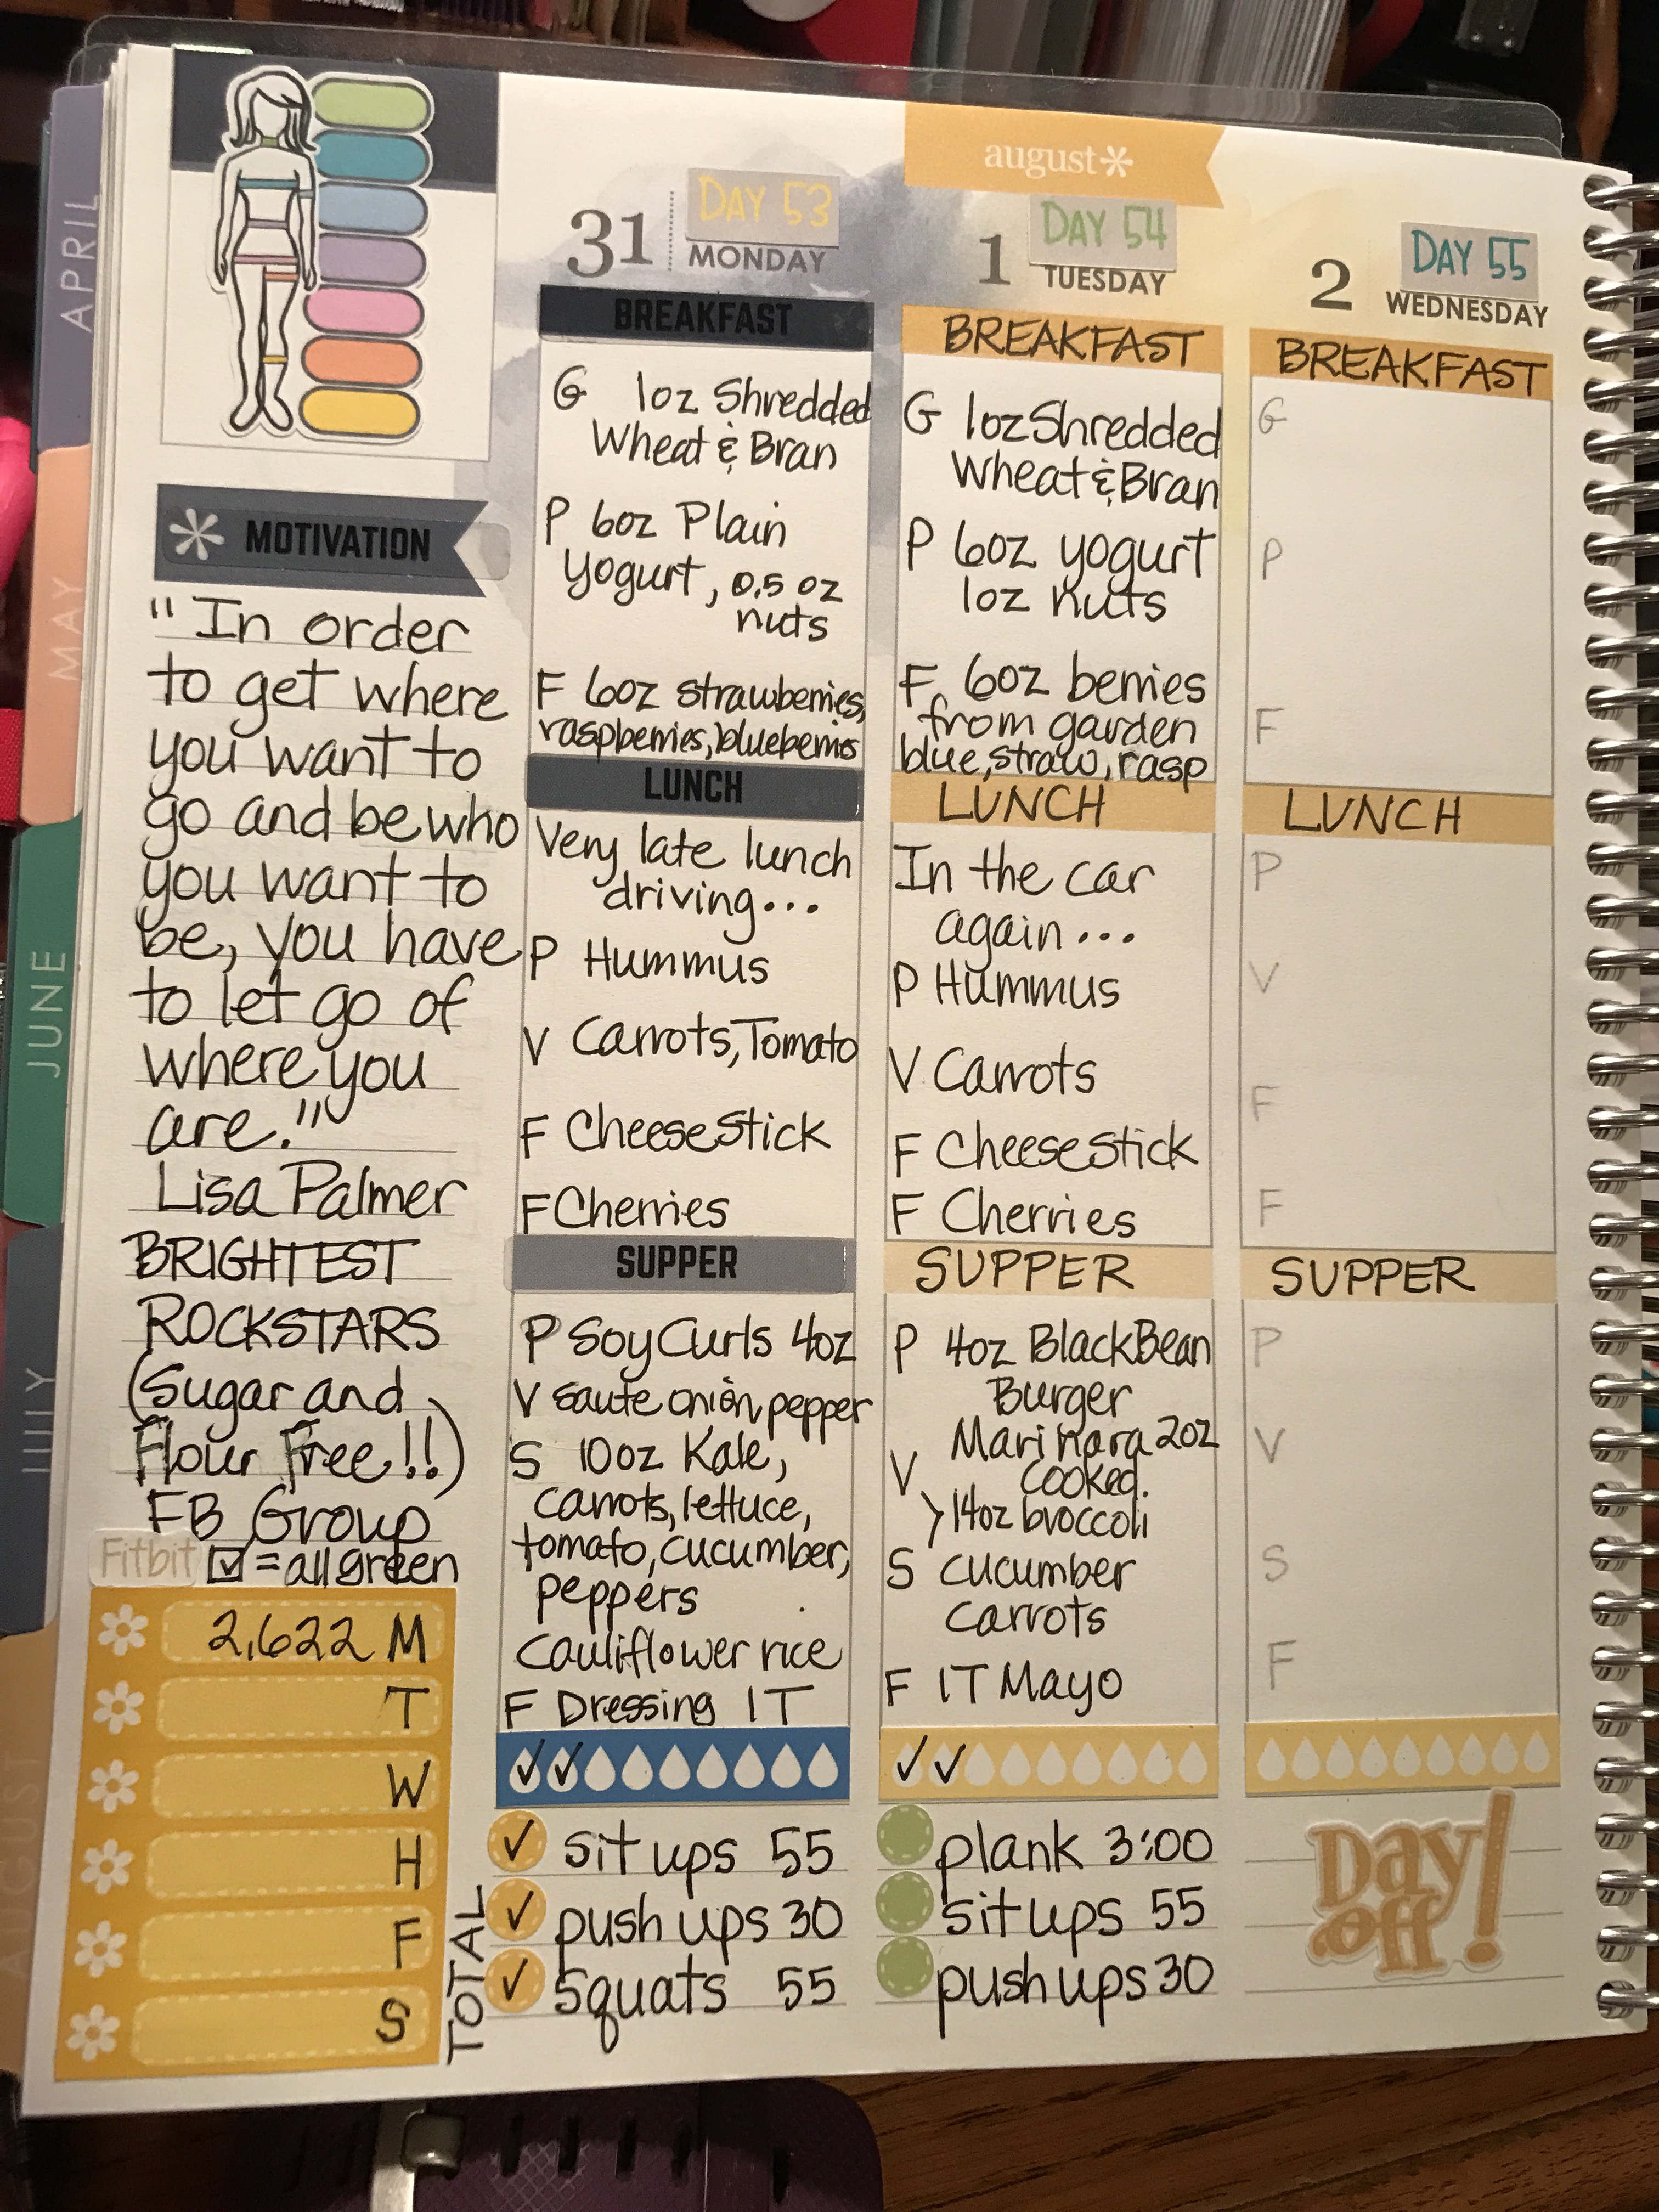 APRIL
MAY
JUNE
JULY
AUGUST
* MOTIVATION
"In order
to get where
you want to
go and be who
you want to
be, you have
to let go of
where you
are."
Lisa Palmer
BRIGHTEST
ROCKSTARS
(Sugar and
Flour Free!!)
FB Group
Fitbit ☑ = all green
2,622 M
T
W
H
F
S
TOTAL
31 DAY 53
MONDAY
BREAKFAST
G 1oz Shredded
Wheat & Bran
P 6oz Plain
Yogurt, 0.5 oz
nuts
F 6oz strawberries,
raspberries, blueberries
LUNCH
Very late lunch
driving...
P Hummus
V Carrots, Tomato
F Cheese Stick
F Cherries
SUPPER
P Soy Curls 4oz
V saute onion pepper
S 10oz Kale,
carrots, lettuce,
tomato, cucumber,
peppers
Cauliflower rice
F Dressing 1T
✓✓
✓ sit ups 55
✓ push ups 30
✓ squats 55
august*
1 DAY 54
TUESDAY
BREAKFAST
G 1oz Shredded
Wheat & Bran
P 6oz yogurt
1oz nuts
F 6oz berries
from garden
blue, straw, rasp
LUNCH
In the car
again...
P Hummus
V Carrots
F Cheese Stick
F Cherries
SUPPER
P 4oz Black Bean
Burger
Marinara 2oz
V cooked.
>14oz broccoli
S cucumber
carrots
F 1T Mayo
✓✓
plank 3:00
sit ups 55
push ups 30
2 DAY 55
WEDNESDAY
BREAKFAST
G
P
F
LUNCH
P
V
F
F
SUPPER
P
V
S
F
Day
off!